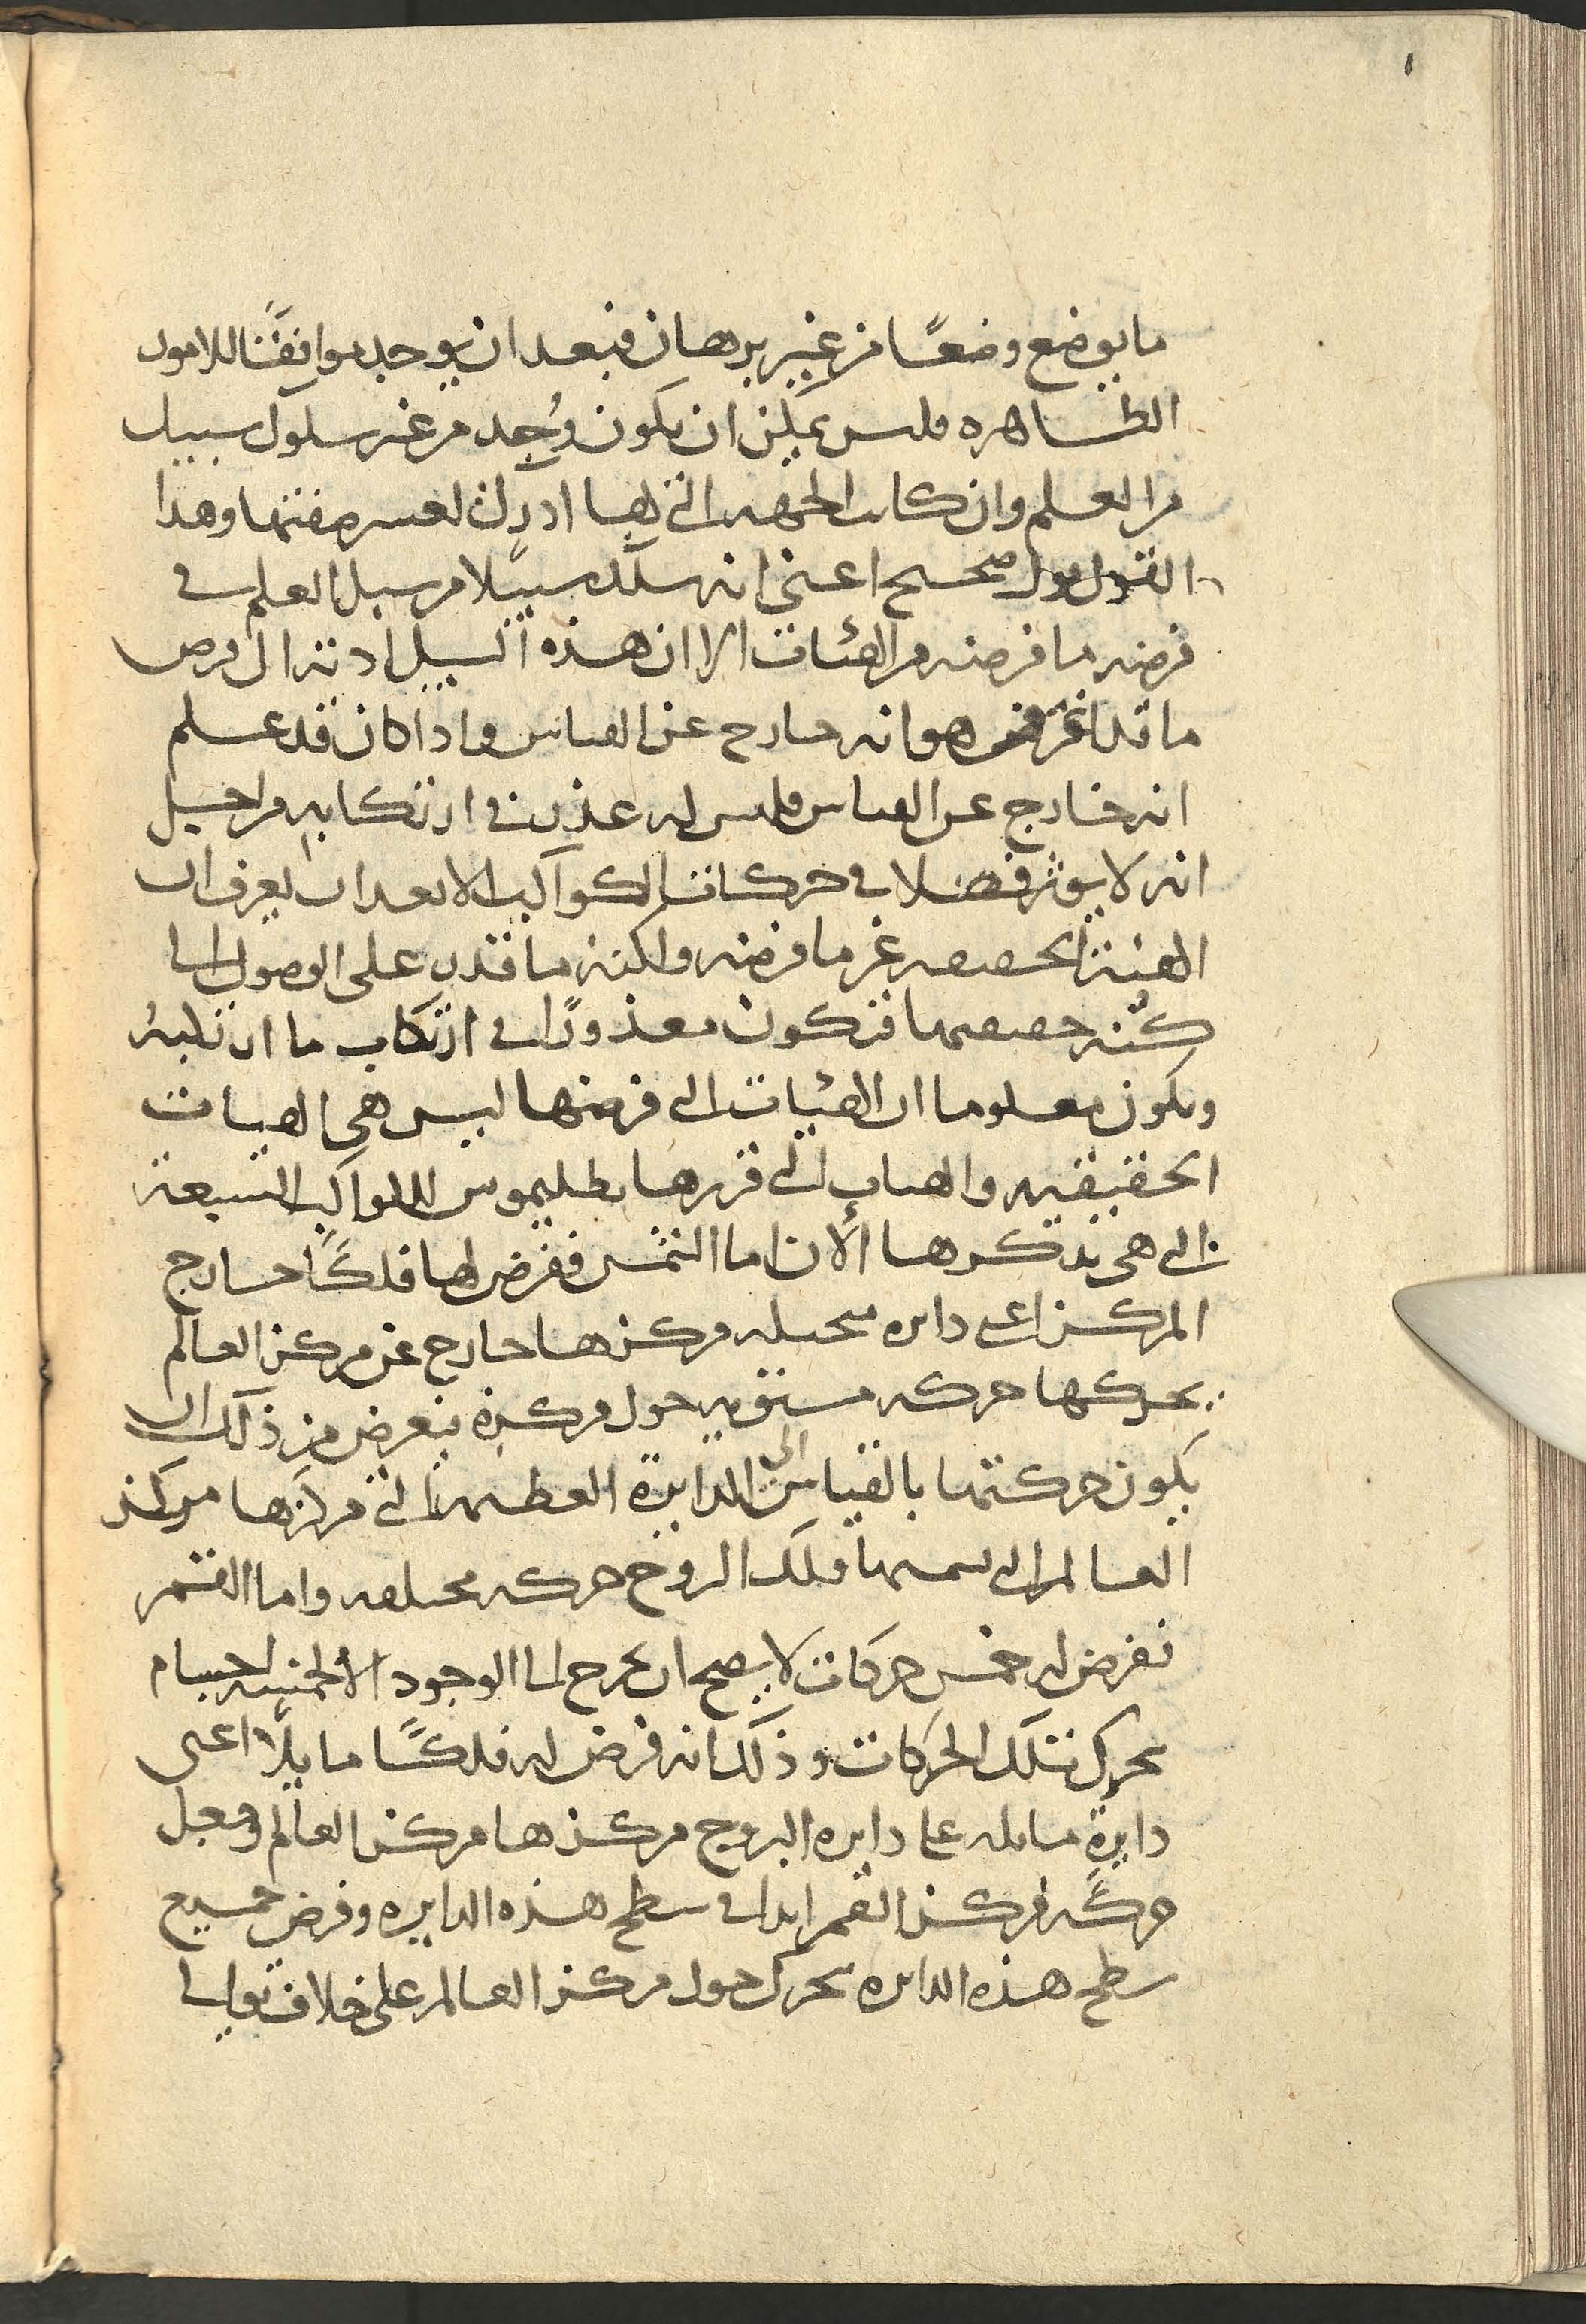 ١
ما يوضع وضعًا من غير برهان فبعد ان يوجد موافقًا للامور
الظاهره فليس يمكن ان يكون وُجد من غير سلوك سبيل
من العلم وان كانت الجهه التي لها ادرك لعسر صفتها وهذا
القول قول صحيح اعني انه سلك سبيلا من سبل العلم في
فرضه ما فرضه من الهئات الا ان هذه السبيل ادته الى فرض
ما قد اعترف هو انه خارج عن القياس واذا كان قد علم
انه خارج عن القياس فليس له عذر في ارتكابه من اجل
انه لا يوثر فضلا في حركات الكواكب الا بعد ان يعرف ان
الهيئة الحقيقيه غير ما فرضه ولكنه ما قدر على الوصول الى
كنه حقيقتها فتكون معذورًا في ارتكاب ما ارتكبهُ
ويكون معلوما ان الهئيات التي فرضها ليس هي الهيات
الحقيقيه والهيات التي قررها بطليموس للكواكب السبعة
التي هي نذكرها الأن اما الشمس ففرض لها فلكًا خارج
المركز اعني دايره متخيله مركزها خارج عن مركز العالم
يحركها حركه مستويه حول مركزه فيعرض من ذلك ان
يكون حركتها بالقياس الى الدايرة العظيمة التي مركزها مركز
العالم التي يسميها فلك البروج حركه مختلفه واما القمر
نفرض له خمس حركات لا يصح ان يخرج الى الوجود الا لخمسه اجسام
تحرك بتلك الحركات وذلك انه فرض له فلكًا مايلًا اعني
دايرة مايله على دايره البروج مركزها مركز العالم وجعل
حركه مركز القمر ابدا في سطح هذه الدايره وفرض جميع
سطح هذه الدايره يتحرك حول مركز العالم على خلاف توالي